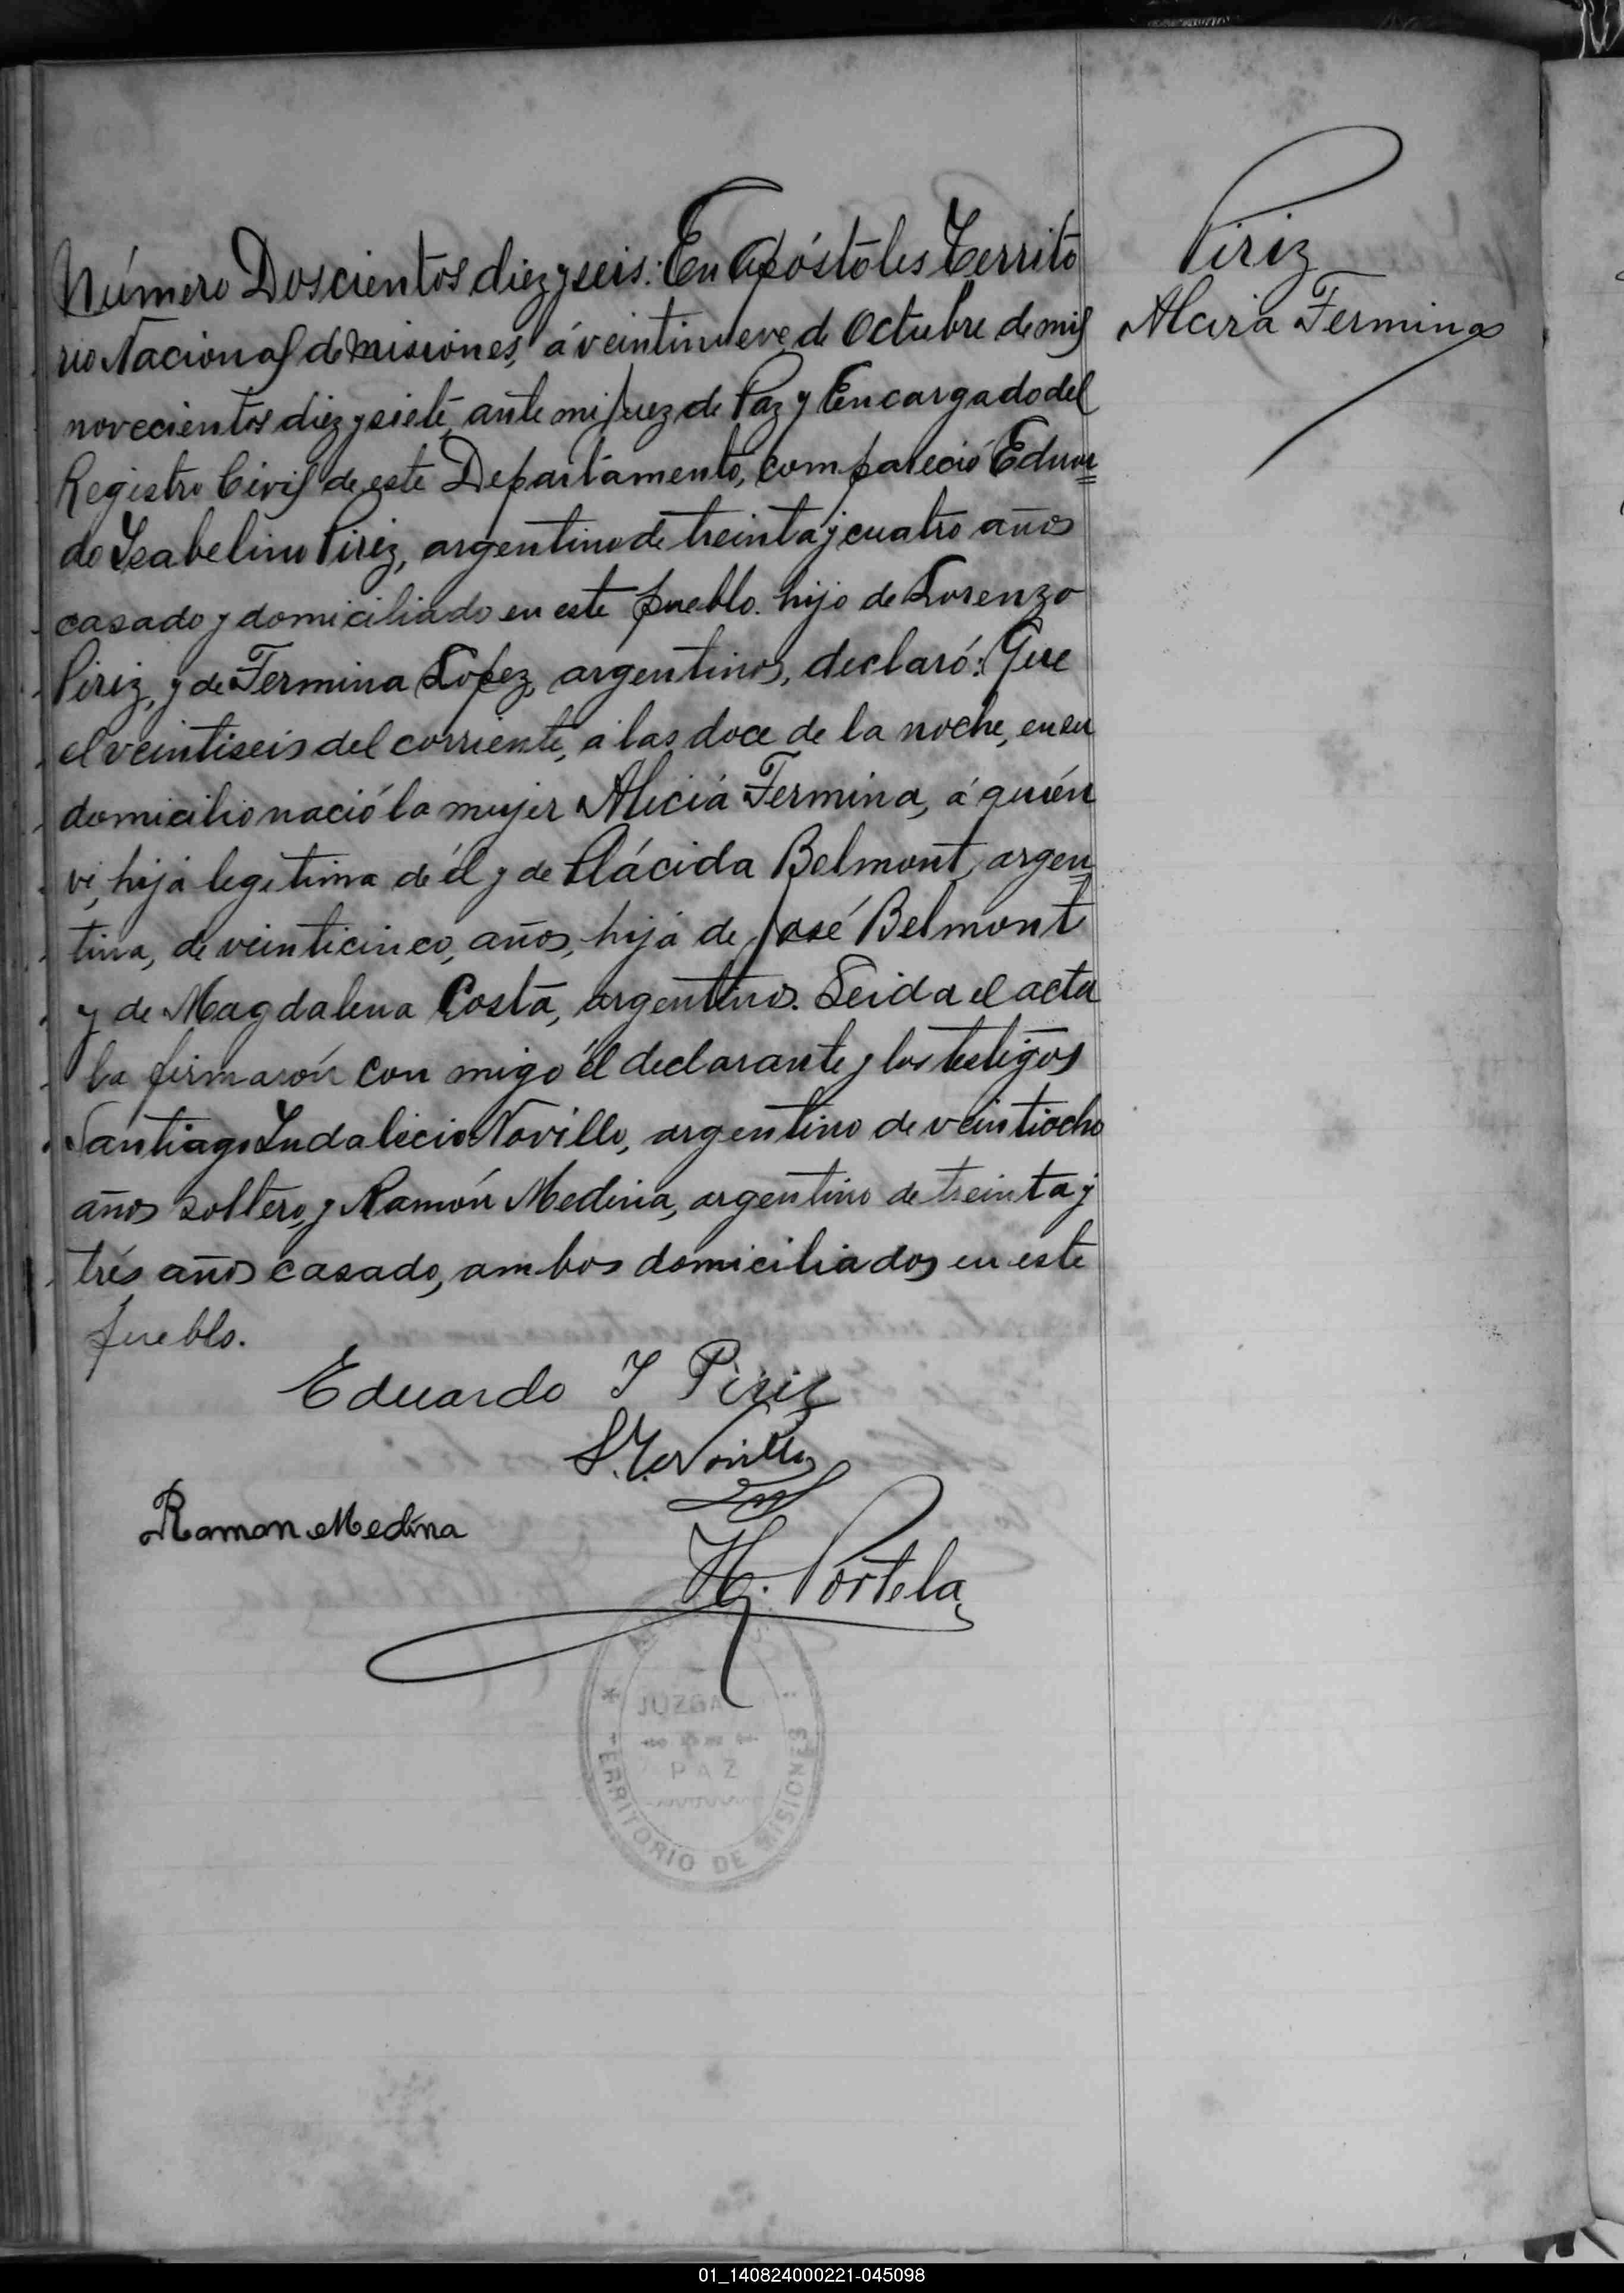 Número Doscientos diez y seis: En Apóstoles Territo
rio Nacional de Misiones, á veintinueve de Octubre de mil
novecientos diez y siete, ante mi Juez de Paz y Encargado del
Registro Civil de este Departamento, compareció Eduar
do Ysabelino Piriz, argentino de treinta y cuatro años
casado y domiciliado en este pueblo. hijo de Lorenzo
Piriz, y de Fermina Lopez, argentinos, declaró: Que
el veintiseis del corriente, a las doce de la noche, en su
domicilio nació la mujer Alicia Fermina, á quién
vi, hija legitima de él y de Plácida Belmont, argen
tina, de veinticinco, años, hija de José Belmont
y de Magdalena Costa, argentinos. Leida el acta
la firmarón con migo él declarante y los testigos
Santiago Indalecio Novillo, argentino de veintiocho
años soltero, y Ramón Medina, argentino de treinta y
trés años casado, ambos domiciliados en este
pueblo.
Eduardo Y Piriz
S. Y. Novillo
Ramon Medina
H. Portela
JUZGA
PAZ
TERRITORIO DE MISIONES
Piriz
Alcira Fermina
01_140824000221-045098